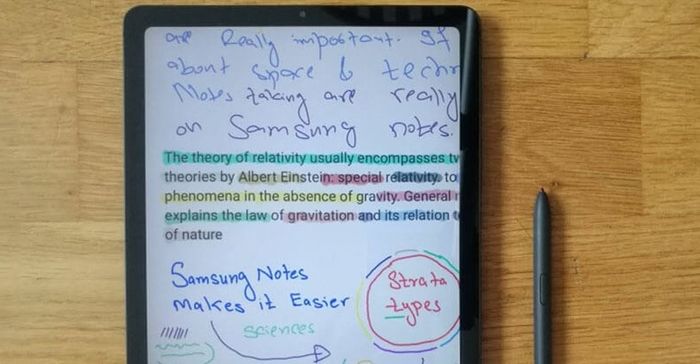 are Really important. If
about space & techn
Notes taking are really
on Samsung notes.
The theory of relativity usually encompasses tw
theories by Albert Einstein: special relativity. to
phenomena in the absence of gravity. General r
explains the law of gravitation and its relation t
of nature
Samsung Notes
makes it Easier
Strata
types
sciences